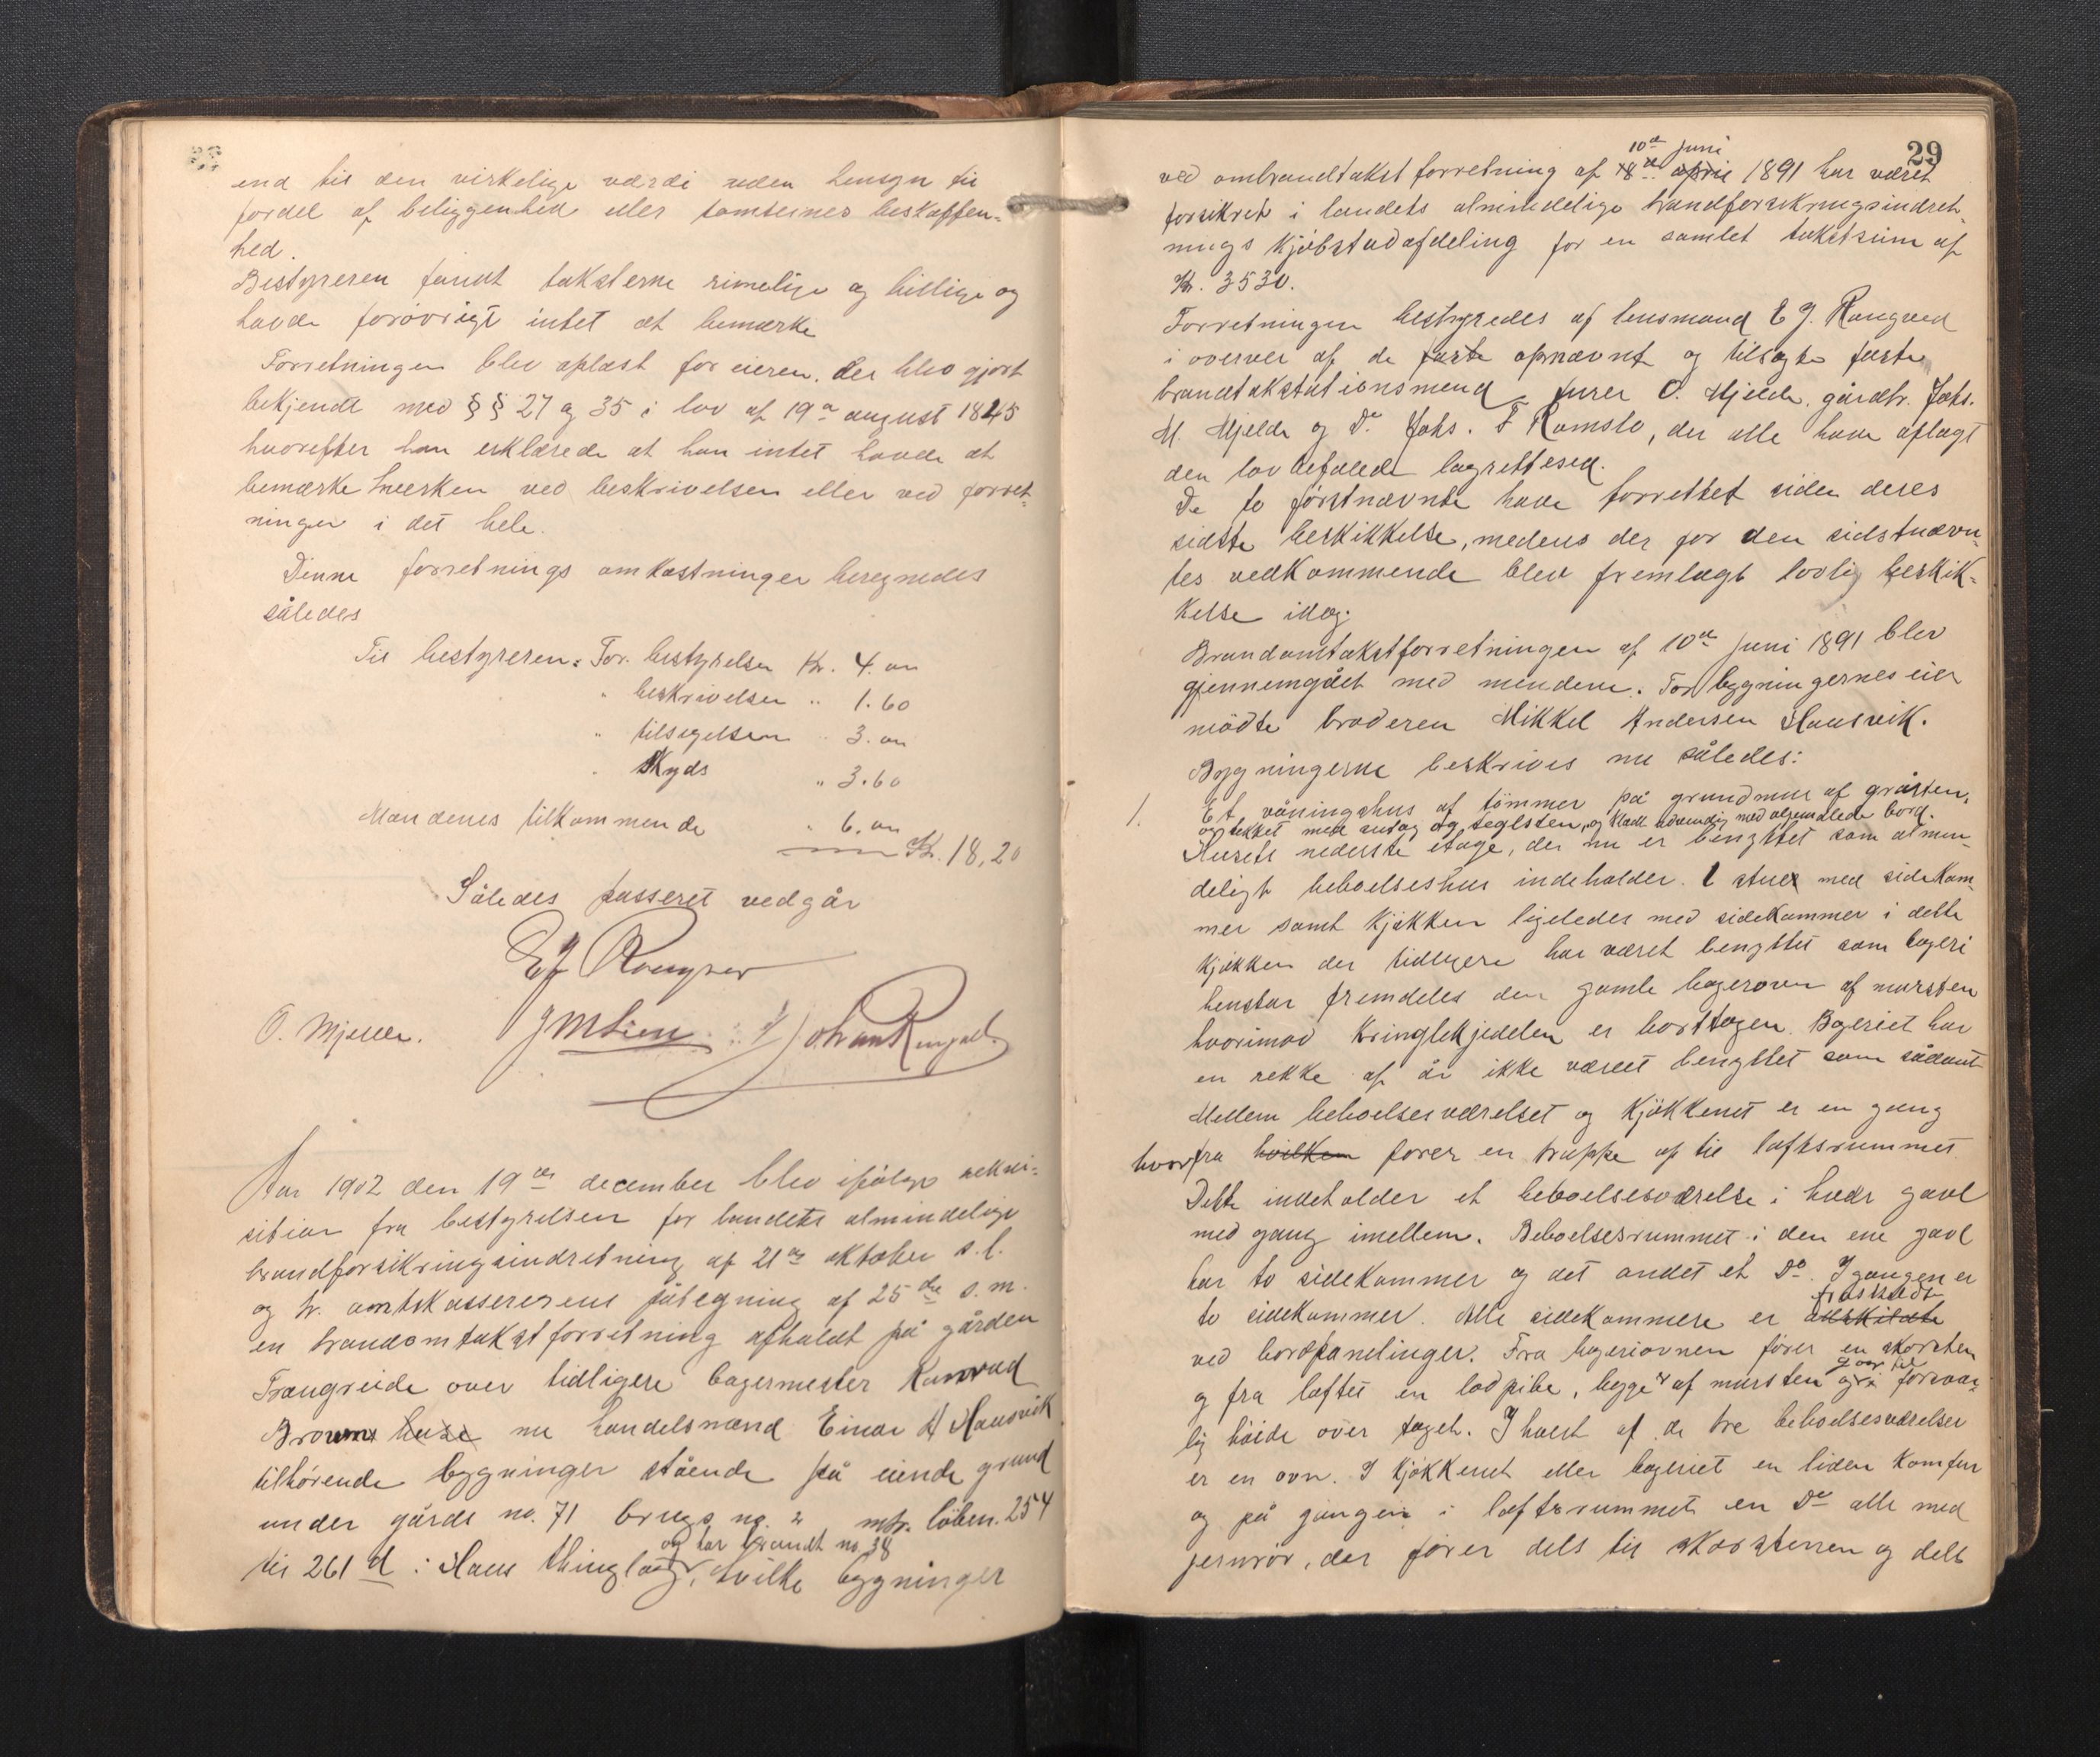 end til den virkelige værdi uden hensyn til
fordel af beliggenhed eller tomternes beskaffen=
hed.
Bestyreren fandt taksterne rimelige og billige og
havde forøvrigt intet at bemærke
Forretningen blev oplæst for eieren, der blev gjort
bekjendt med §§ 27 og 35 i lov af 19de august 1845
hvorefter han erklærede at han intet havde at
bemærke hverken ved beskrivelsen eller ved forret=
ningen i det hele.
Denne forretnings omkostninger beregnedes
således
Til bestyreren: For bestyrelsen Kr. 4.00
" beskrivelsen " 1.60
" tilsigelsen " 3.00
" Skyds " 3.60
Mændenes tilkommende " 6.00
Kr. 18,20
Således passeret vedgår
EJ Rongved
O. Mjelde. JMLien Johan
Aar 1902 den 19de december blev ifølge rekvi=
sition fra bestyrelsen for landets almindelige
brandforsikringsindretning af 21de oktober s.l.
og hr. amtskassererens påtegning af 25de s.m.
en brandomtakstforretning afholdt på gården
Trængreide over tidligere bagermester Konrad
Brouns huse nu handelsmand Einar A Hansvik
tilhørende bygninger stående på eiende grund
under gårds no. 71 brugs no. 2 mtr. löben. 254
og har brandt no. 38
til 261 d i Haus thinglag, hvilke bygninger
29
10de juni
ved ombrandtakstforretning af 18de april 1891 har været
forsikret i landets almindelige brandforsikringsindret=
nings kjøbstadafdeling for en samlet takstsum af
Kr. 3530.
Forretningen bestyredes af lensmand E J. Rongved
i overvær af de faste opnævnt og tilsagte faste
brandtakstationsmænd furer O. Mjelde, gårdbr. Johs.
M. Mjelde og Do Johs. T Romslo, der alle have aflagt
den lovbefalede lagrettesed.
De to førstnævnte have forrettet siden deres
sidste beskikkelse, medens der for den sidstnævn=
tes vedkommende blev fremlagt lovlig beskik=
kelse idag.
Brandomtakstforretningen af 10de juni 1891 blev
gjennemgået med mændene. For bygningernes eier
mödte broderen Mikkel Andersen Hansvik.
Bygningerne beskrives nu således:
1. Et våningshus af tömmer på grundmur af gråsten,
og tækket med sutag og teglsten, og klædt udvendig med alemalede bord.
Husets nederste etage, der nu er benyttet som almin=
deligt beboelseshus indeholder 1 stue med sidekam=
mer samt kjøkken ligeledes med sidekammer i dette
kjøkken der tidligere har været benyttet som bageri
henstår fremdeles den gamle bagerovn af mursten
hvorimod kringlekjedelen er borttagen. Bageriet har
en rekke af år ikke været benyttet som sådant
Mellem beboelsesværelset og kjøkkenet er en gang
hvorfra hvilken fører en trappe op til loftsrummet
Dette indeholder et beboelsesværelse i hver gavl
med gang imellem. Beboelsesrummet i den ene gavl
har to sidekammer og det andet et Do. I gangen er
fraskildt
to sidekammer. Alle sidekammere er adskildte
ved bordpanelinger. Fra bageriovnen fører en skorsten
går til
og fra loftet en lodpibe, begge af mursten og i forsvar=
lig höide over taget. I hvert af de tre beboelsesværelser
er en ovn. I kjøkkenet eller bageriet en liden komfur
og på gangen i loftsrummet en Do alle med
jernrör, der fører dels til skorstenen og dels